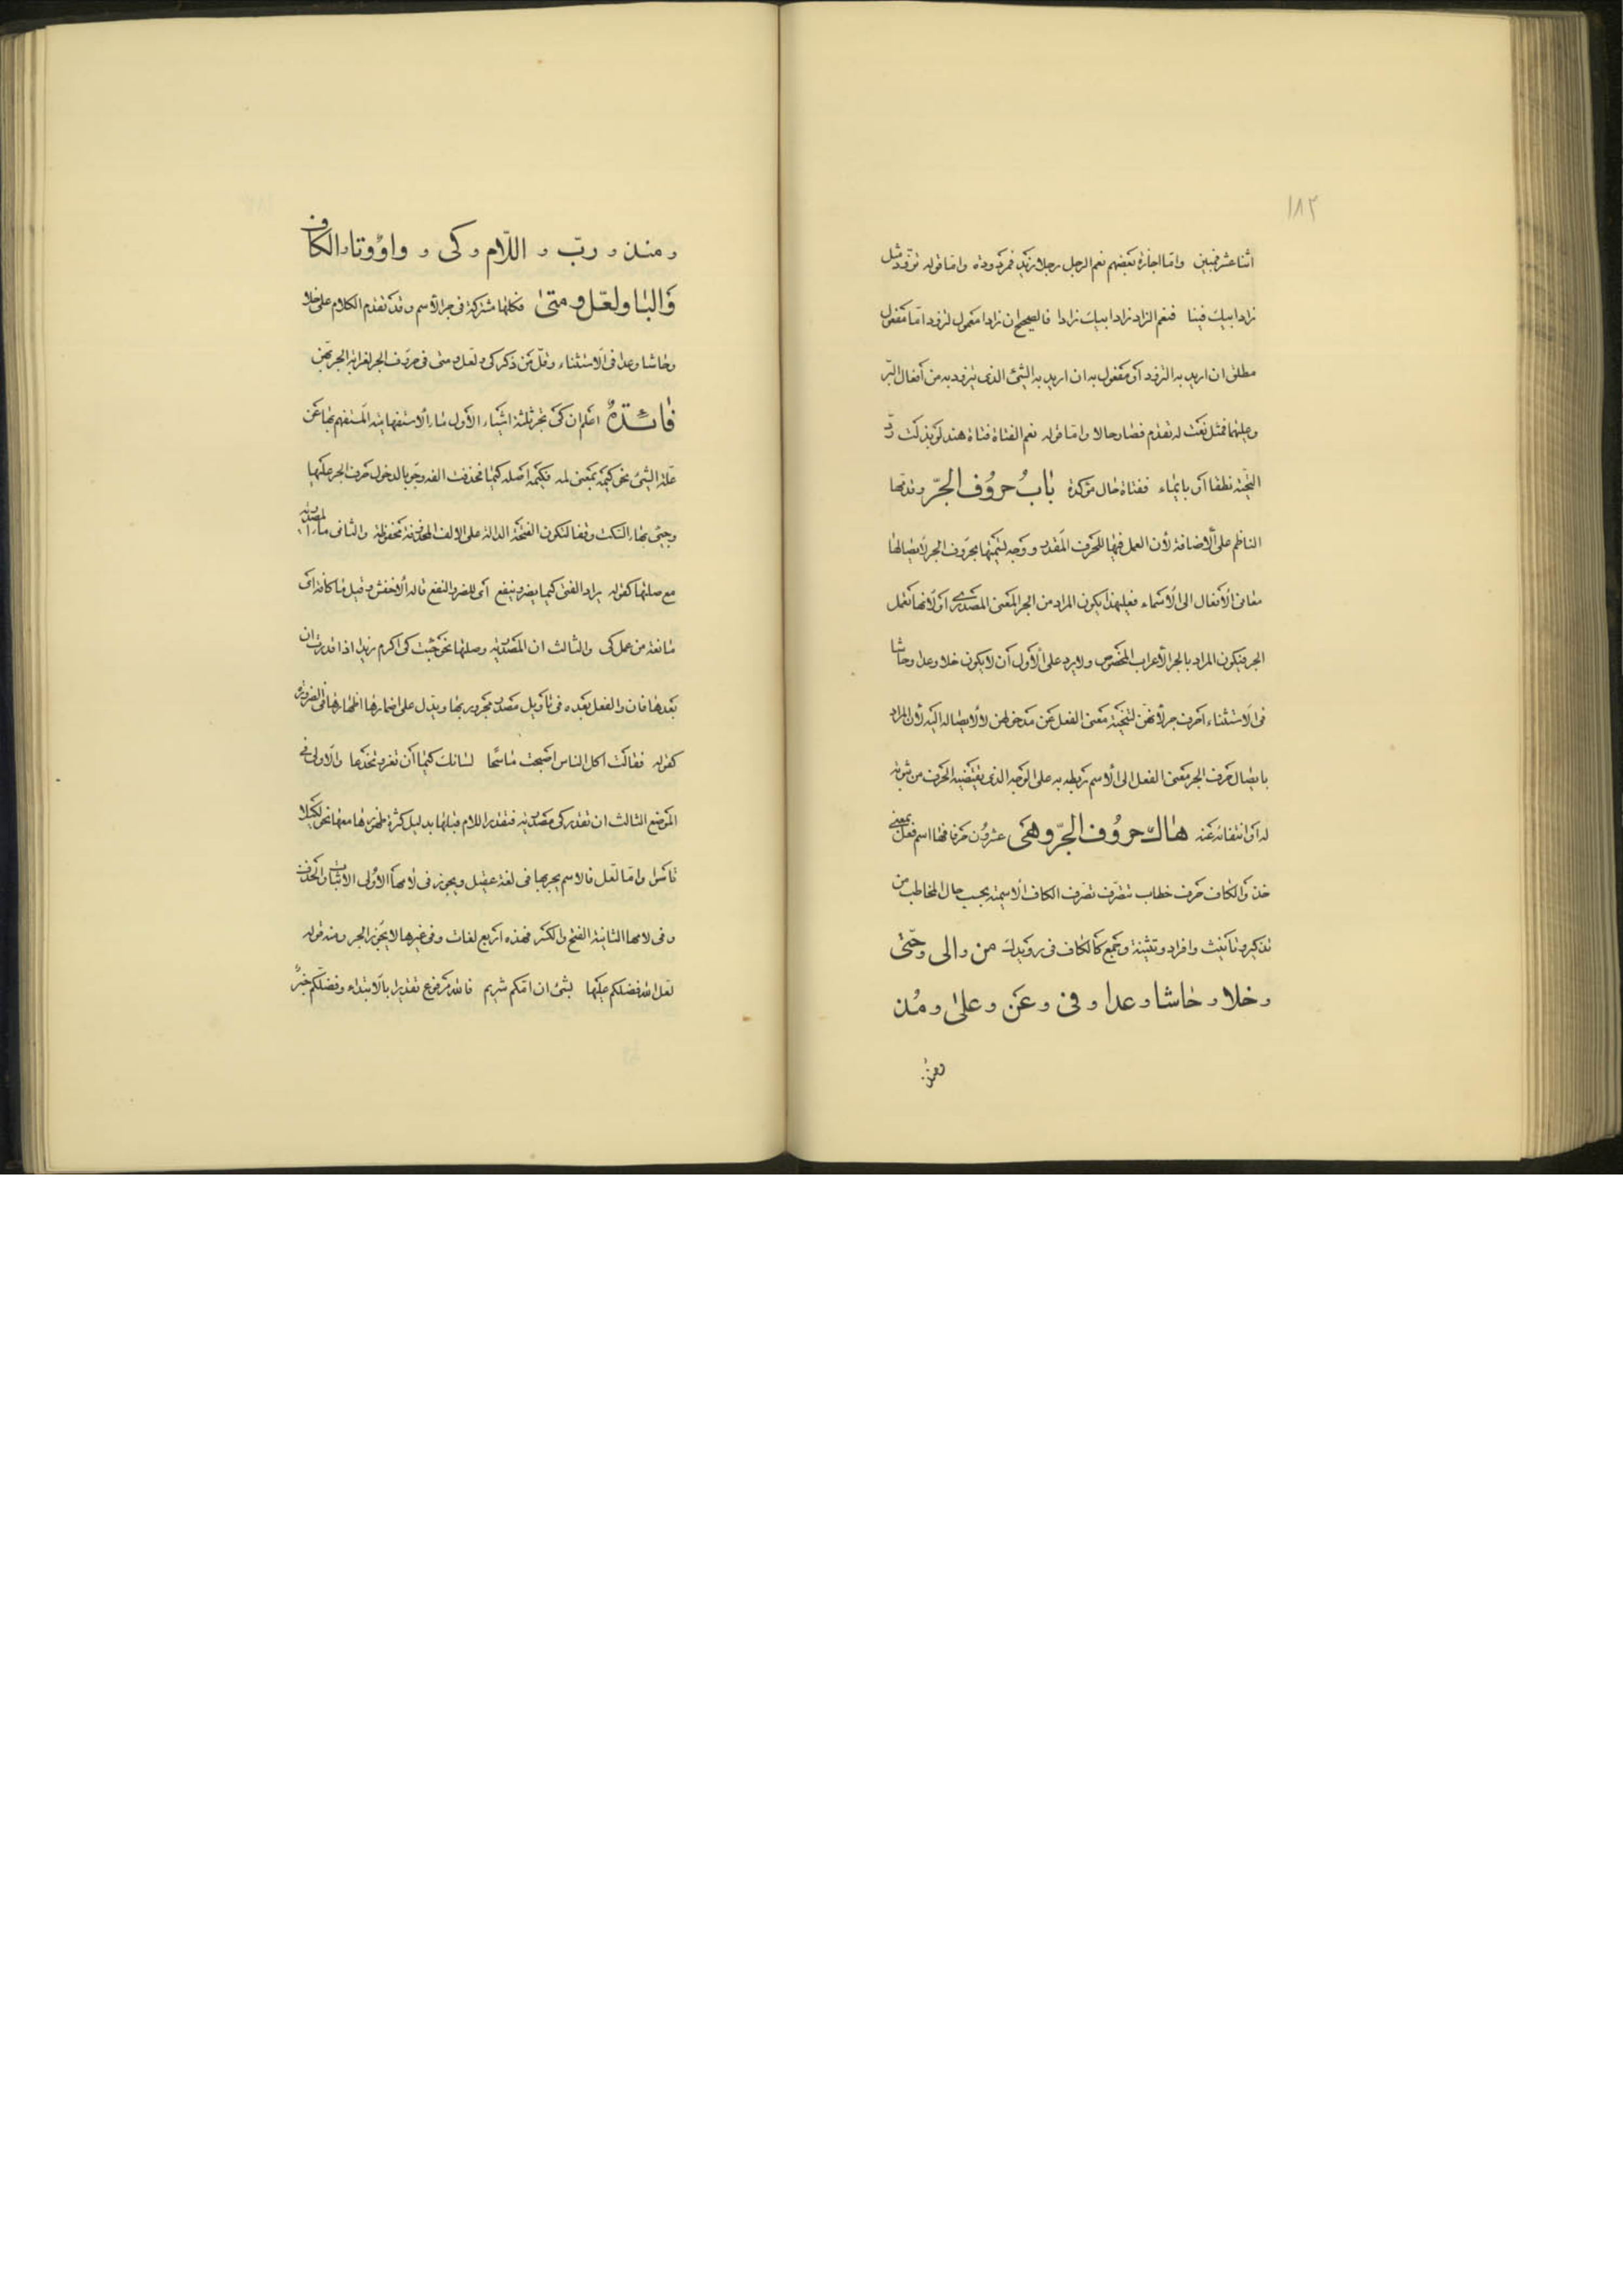 ١٨٢
اثنا عشر مبين واما اجازة بعضهم نعم الرجل رجلا زيد فمردودة واما قوله تزود مثل
زاد ابيك فينا فنعم الزاد زاد ابيك زادا فالصحيح ان زادا معمول لتزود اما مفعول
مطلق ان اريد به التزود او مفعول به ان اريد به الشئ الذى يتزود به من أفعال البر
وعليهما فمثل نعت له تقدم فصار حالا واما قوله نعم الفتاة فتاة هند لو بذلت رد
التحية نطقا او بايماء ففتاة حال مؤكدة باب حروف الجرّ وقدمها
الناظم على الاضافة لأن العمل فيها للحرف المقدر ووجه تسميتها بحروف الجر لايصالها
معانى الأفعال الى الأسماء فعلى هذا يكون المراد من الجر المعنى المصدرى او لانها تعمل
الجر فيكون المراد بالجر الاعراب المخصوص ولا يرد على الأول أن لا يكون خلا وعدا وحاشا
فى الاستثناء احرف جر لانهن لتنحية معنى الفعل عن مدخولهن لا لايصاله اليه لأن المراد
بايصال حرف الجر معنى الفعل الى الاسم ربطه به على الوجه الذى يقتضيه الحرف من ثبوته
له او انتفائه عنه هاك حروف الجرّ وهى عشرون حرفا فها اسم فعل بمعنى
خذ والكاف حرف خطاب تتصرف تصرف الكاف الاسمية بحسب حال المخاطب من
تذكير وتأنيث وافراد وتثنية وجمع كالكاف فى رويدك من والى وحتّى
وخلا وحاشا وعدا وفى وعن وعلى ومُذ
ومنذ
ومنذ ورب واللّام وكى وواوٌ وتا والكاف
والبا ولعلّ ومتى فكلها مشتركة فى جر الاسم وقد تقدم الكلام على خلا
وحاشا وعدا فى الاستثناء وقل من ذكر كى ولعل ومتى فى حروف الجر لغرابة الجر بهن
فائدة اعلم ان كى تجر ثلثة اشياء الأول ما الاستفهامية المستفهم بها عن
علة الشئ نحو كيمه بمعنى لمه فكيمه اصله كيما فحذفت الفه وجوبا لدخول حرف الجر عليها
وجيئ بهاء السكت وقفا لتكون الفتحة الدالة على الالف المحذوفة محفوظة والثانى ما المصدرية
مع صلتها كقوله يراد الفتى كيما يضر وينفع اى للضر والنفع قاله الاخفش وقيل ما كافة اى
مانعة من عمل كى والثالث ان المصدرية وصلتها نحو جئت كى اكرم زيدا اذا قدرت ان
بعدها فان والفعل بعده فى تأويل مصدر مجرور بها ويدل على اضمارها اظهارها فى الضرورة
كقوله فقالت اكل الناس اصبحت مانحا لسانك كيما أن تغر وتخدعا والاولى فى
الموضع الثالث ان تقدر كى مصدرية فتقدر اللام قبلها بدليل كثرة ظهورها معها نحو لكيلا
تأسوا واما لعل فالاسم يجر بها فى لغة عقيل ويجوز فى لامها الاولى الاثبات والحذف
وفى لامها الثانية الفتح والكسر فهذه اربع لغات وفى غيرها لا يجوز الجر ومنه قوله
لعل الله فضلكم علينا بشئ ان امكم شريم فالله مرفوع تقديرا بالابتداء وفضلكم خبرٌ